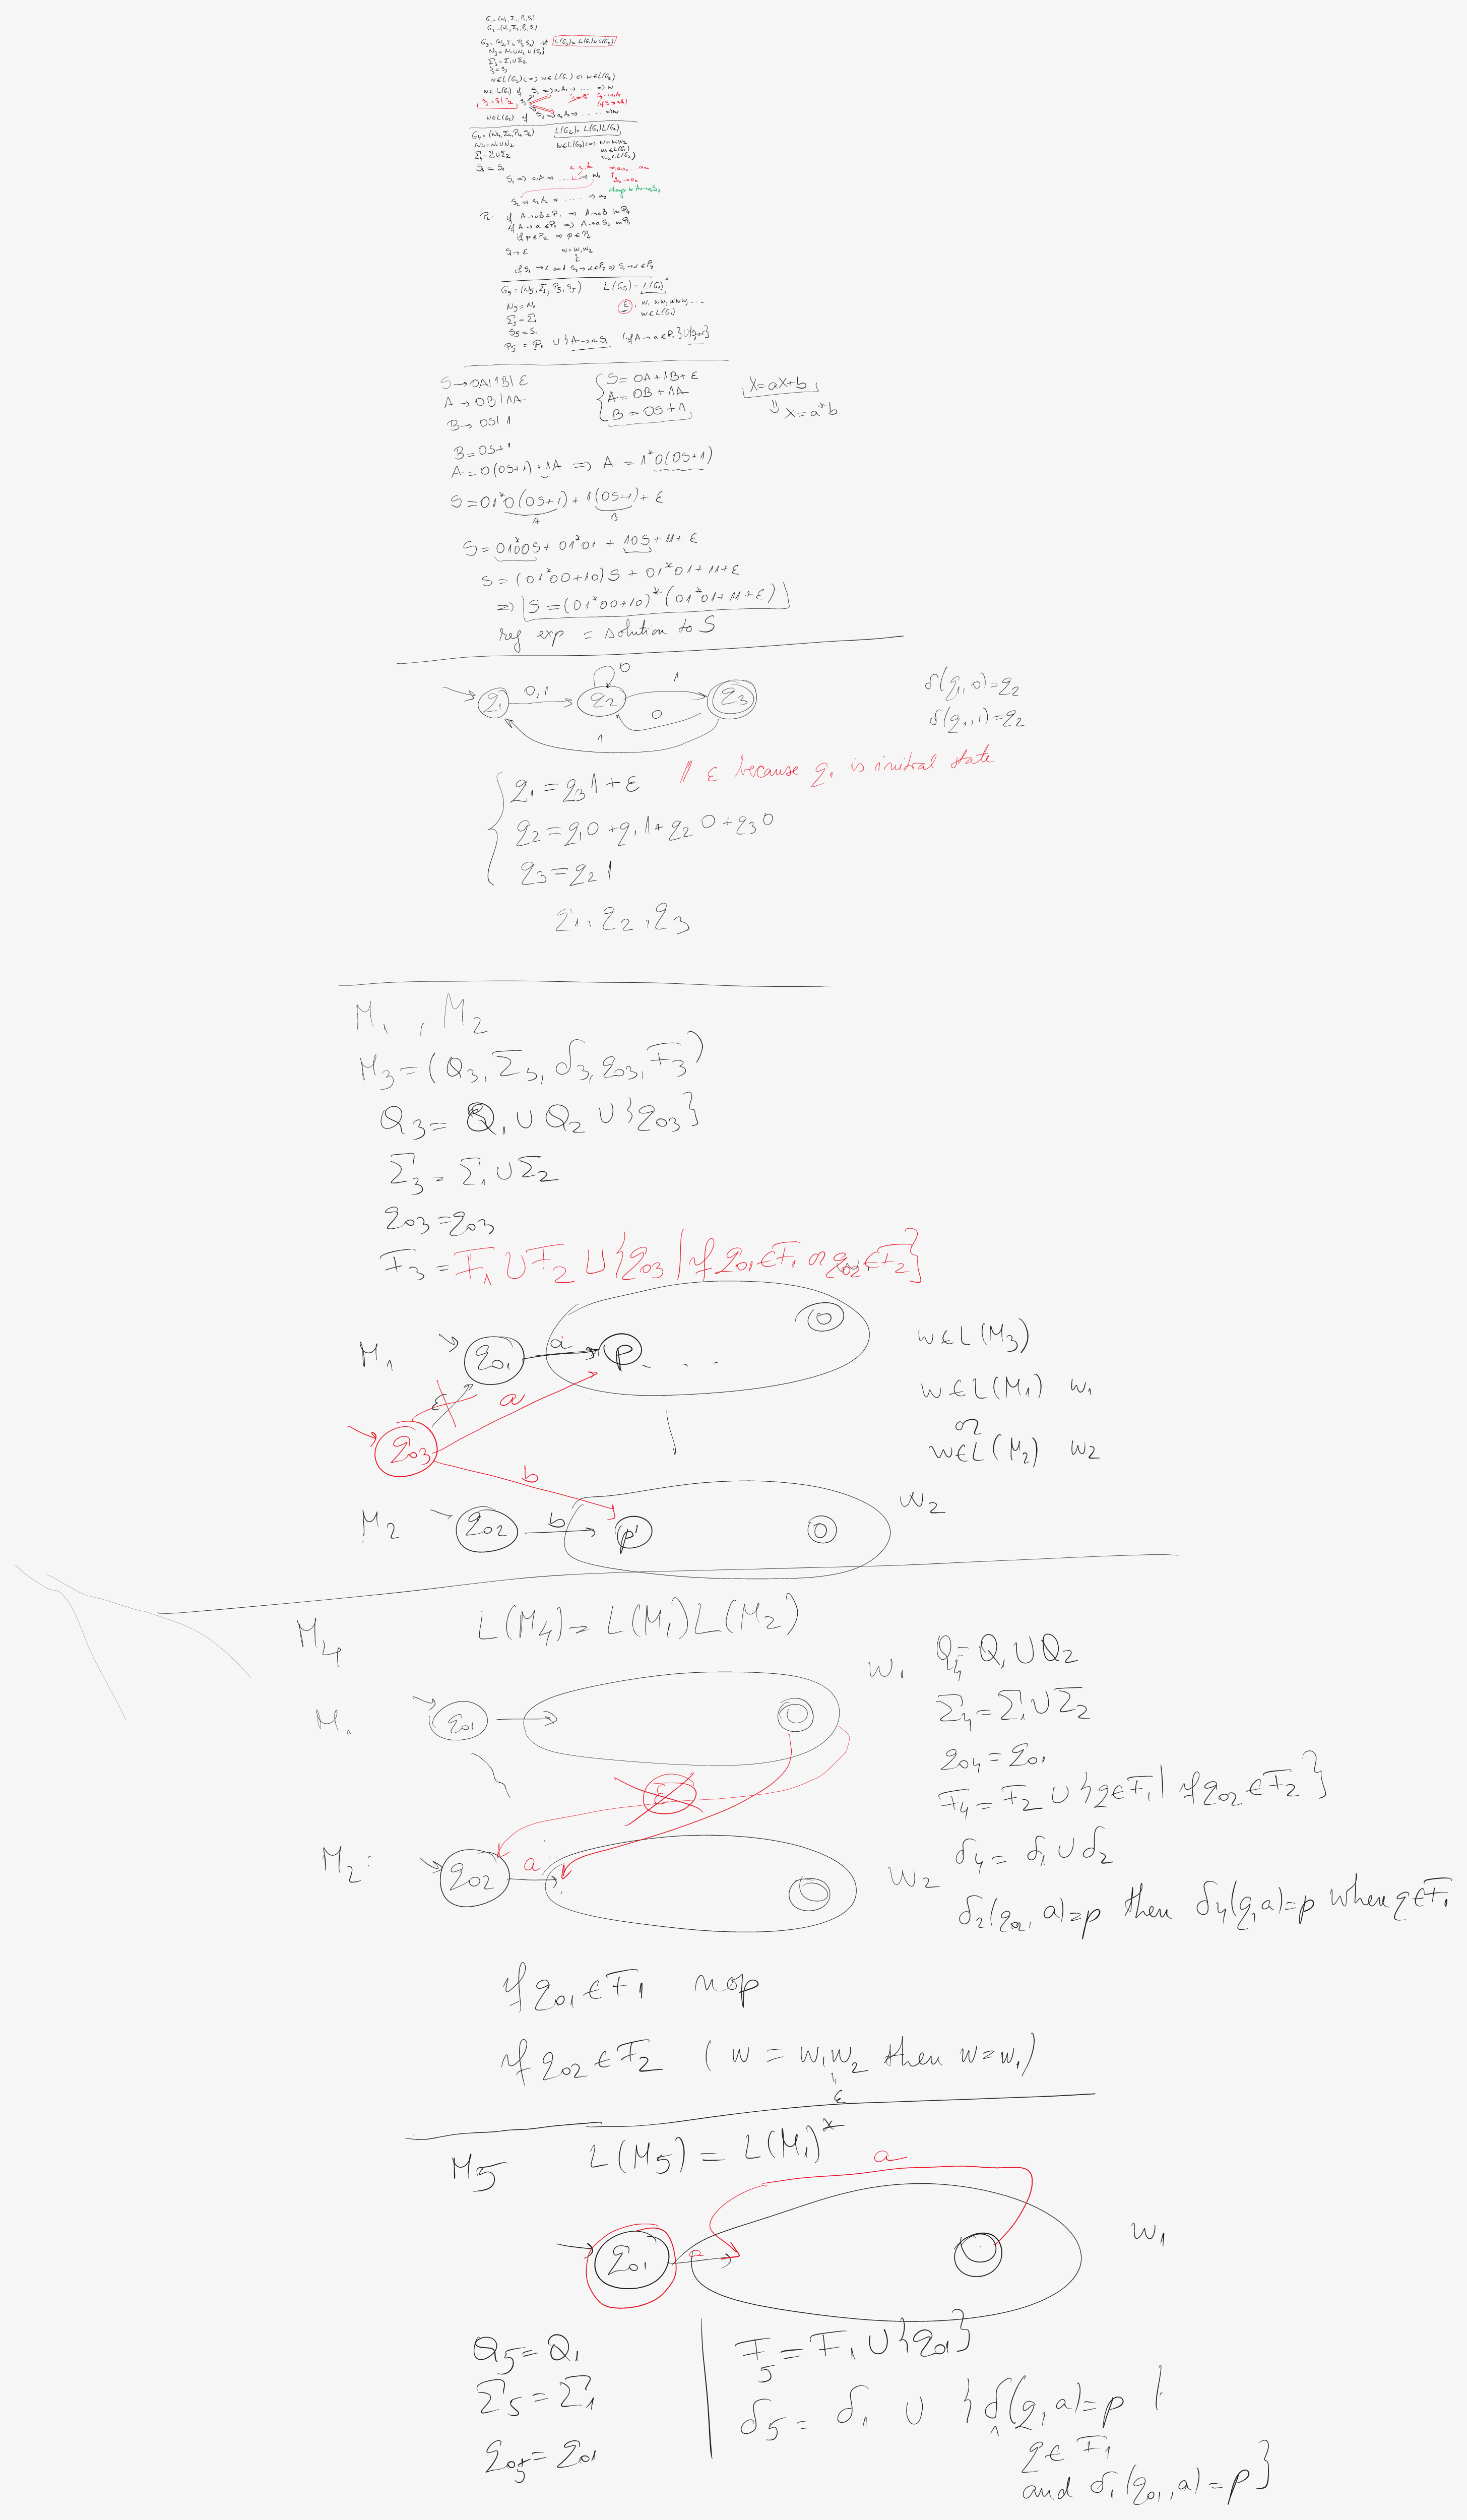 G₁=(N₁,Σ₁,P₁,S₁)
G₂=(N₂,Σ₂,P₂,S₂)
G₃=(N₃,Σ₃,P₃,S₃) st L(G₃)=L(G₁)∪L(G₂)
N₃=N₁∪N₂∪{S₃}
Σ₃=Σ₁∪Σ₂
S₃=S₃
w∈L(G₃)<=> w∈L(G₁) or w∈L(G₂)
w∈L(G₁) if S₁=>a₁A₁=> ..... =>w
S₃→S₁|S₂ S₃
w∈L(G₂) if S₂=>a₁A₁=> ..... =>w
G₄=(N₄,Σ₄,P₄,S₄) L(G₄)=L(G₁)L(G₂)
N₄=N₁∪N₂ w∈L(G₄)<=> w=w₁w₂
Σ₄=Σ₁∪Σ₂ w₁∈L(G₁)
w₂∈L(G₂)
S₄=S₁
S₁=>a₁A₁=> ..... =>w₁
change to
S₂=>a₁A₁=> ..... =>w₂
P₄: if A→aB∈P₁ => A→aB in P₄
if A→a∈P₁ => A→aS₂ in P₄
if p∈P₂ => p∈P₄
S₁→ε w=w₁w₂
ε
if S₁→ε and S₂→α∈P₂ => S₁→α∈P₄
G₅=(N₅,Σ₅,P₅,S₅) L(G₅)=L(G₁)*
N₅=N₁ ε, w, ww, www, ...
Σ₅=Σ₁ w∈L(G₁)
S₅=S₁
P₅=P₁ ∪{A→aS₁ | if A→a∈P₁}∪{S₁→ε}
S→0A|1B|ε S=0A+1B+ε X=aX+b
A→0B|1A A=0B+1A => X=a*b
B→0S|1 B=0S+1
B=0S+1
A=0(0S+1)+1A => A=1*0(0S+1)
S=01*0(0S+1)+1(0S+1)+ε
A B
S=01*00S+01*01+10S+11+ε
S=(01*00+10)S+01*01+11+ε
=> S=(01*00+10)*(01*01+11+ε)
reg exp = solution to S
q₁ 0,1 q₂ 0 1 q₃ 0 1
δ(q₁,0)=q₂
δ(q₁,1)=q₂
q₁=q₃1+ε // ε because q₁ is initial state
q₂=q₁0+q₁1+q₂0+q₃0
q₃=q₂1
q₁,q₂,q₃
M₁, M₂
M₃=(Q₃,Σ₃,δ₃,q₀₃,F₃)
Q₃=Q₁∪Q₂∪{q₀₃}
Σ₃=Σ₁∪Σ₂
q₀₃=q₀₃
F₃=F₁∪F₂∪{q₀₃|if q₀₁∈F₁ or q₀₂∈F₂}
M₁ q₀₁ a p ... w∈L(M₃)
ε a w∈L(M₁) w₁
or
q₀₃ w∈L(M₂) w₂
b
M₂ q₀₂ b p' w₂
M₄ L(M₄)=L(M₁)L(M₂)
w₁ Q₄=Q₁∪Q₂
M₁ q₀₁ Σ₄=Σ₁∪Σ₂
q₀₄=q₀₁
ε F₄=F₂∪{q∈F₁|if q₀₂∈F₂}
M₂: q₀₂ a w₂ δ₄=δ₁∪δ₂
δ₂(q₀₂,a)=p then δ₄(q,a)=p where q∈F₁
if q₀₁∈F₁ nop
if q₀₂∈F₂ (w=w₁w₂ then w=w₁)
ε
M₅ L(M₅)=L(M₁)*
a
q₀₁ a w₁
Q₅=Q₁ F₅=F₁∪{q₀₁}
Σ₅=Σ₁ δ₅=δ₁ ∪ {δ₁(q,a)=p |
q₀₅=q₀₁ q∈F₁
and δ₁(q₀₁,a)=p}